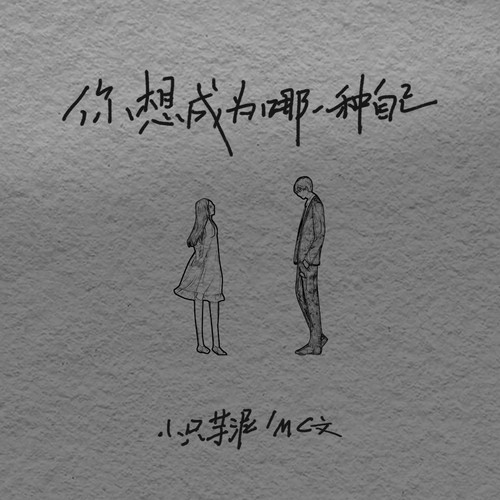 你想成为哪一种自己
小只芋泥/MC文